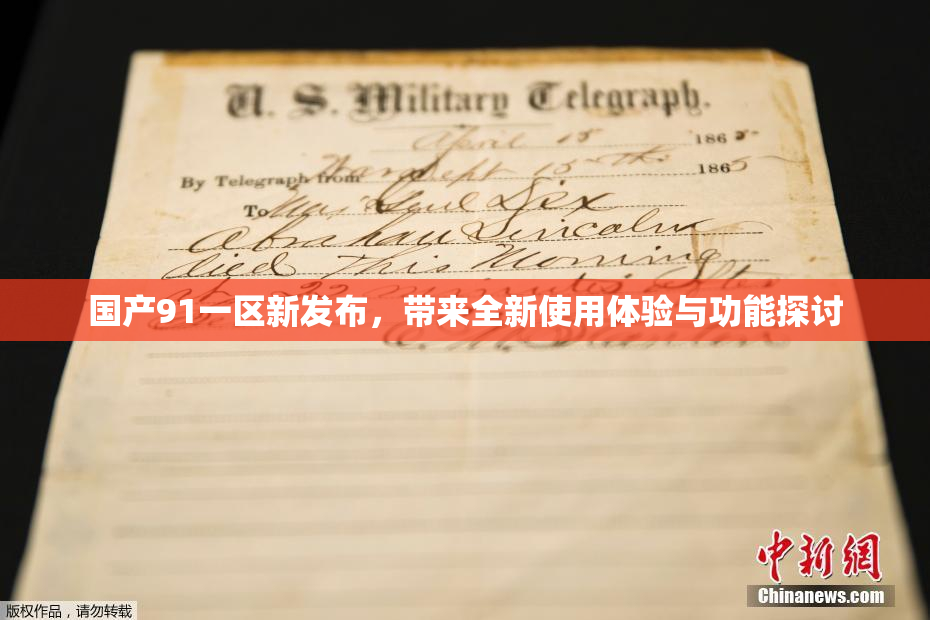 U. S. Military Telegraph.
April 15 1865
By Telegraph from War Dept 15th 1865
To Maj Genl Dix
Abraham Lincoln
died This Morning
at 22 minutes after
国产91一区新发布，带来全新使用体验与功能探讨
中新网
Chinanews.com
版权作品，请勿转载